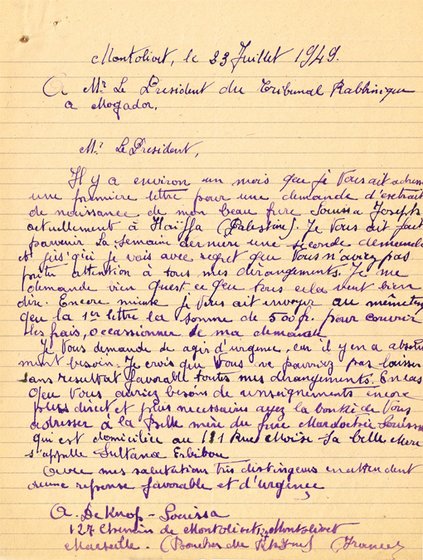 Montolivet, le 23 Juillet 1949.
A Mr. Le President du Tribunal Rabbinique
a Mogador.
Mr. Le President,
Il y a environ un mois que je Vous ait adressé
une première lettre pour une demande d'extrait
de naissance de mon beau frère Souissa Joseph
actuellement à Haïffa (Palestine). Je Vous ait fait
parvenir la semaine dernière une seconde demande
et jus'qici je vois avec regret que Vous n'aviez pas
porté attention à tous mes dérangements. Je me
demande bien quest ce que tous cela veut bien
dire. Encore mieux je Vous ait envoyer au même temps
que la 1er lettre la somme de 500 fr. pour couvrir
les frais, occassionner de ma demande.
Je Vous demande de agir d'urgence, car il y en a absolu
ment besoin. Je crois que Vous ne pourriez pas laisser
sans resultat favorable toutes mes dérangements. En cas
que Vous auriez besoins de renseignements encore
plus direct et plus necessaires ayez la bonté de Vous
adresser à la Belle mère du frère Mardochée Souissa
qui est domiciliée au 181 Rue Moïse. Sa belle mère
s'appelle Sultana Erbibou
Avec mes salutations très distingués en attendent
d'une réponse favorable et d'urgence
A. DeKnop - Souissa
127 Chemin de Montolivet, Montolivet
Marseille. (Bouches du Rhône) (France)